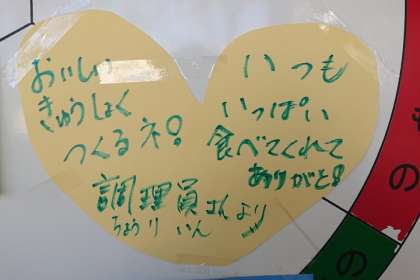 いつも
いっぱい
食べてくれて
ありがと!
おいしい
きゅうしょく
つくるネ!
調理員さんより
ちょうりいん
もの
の